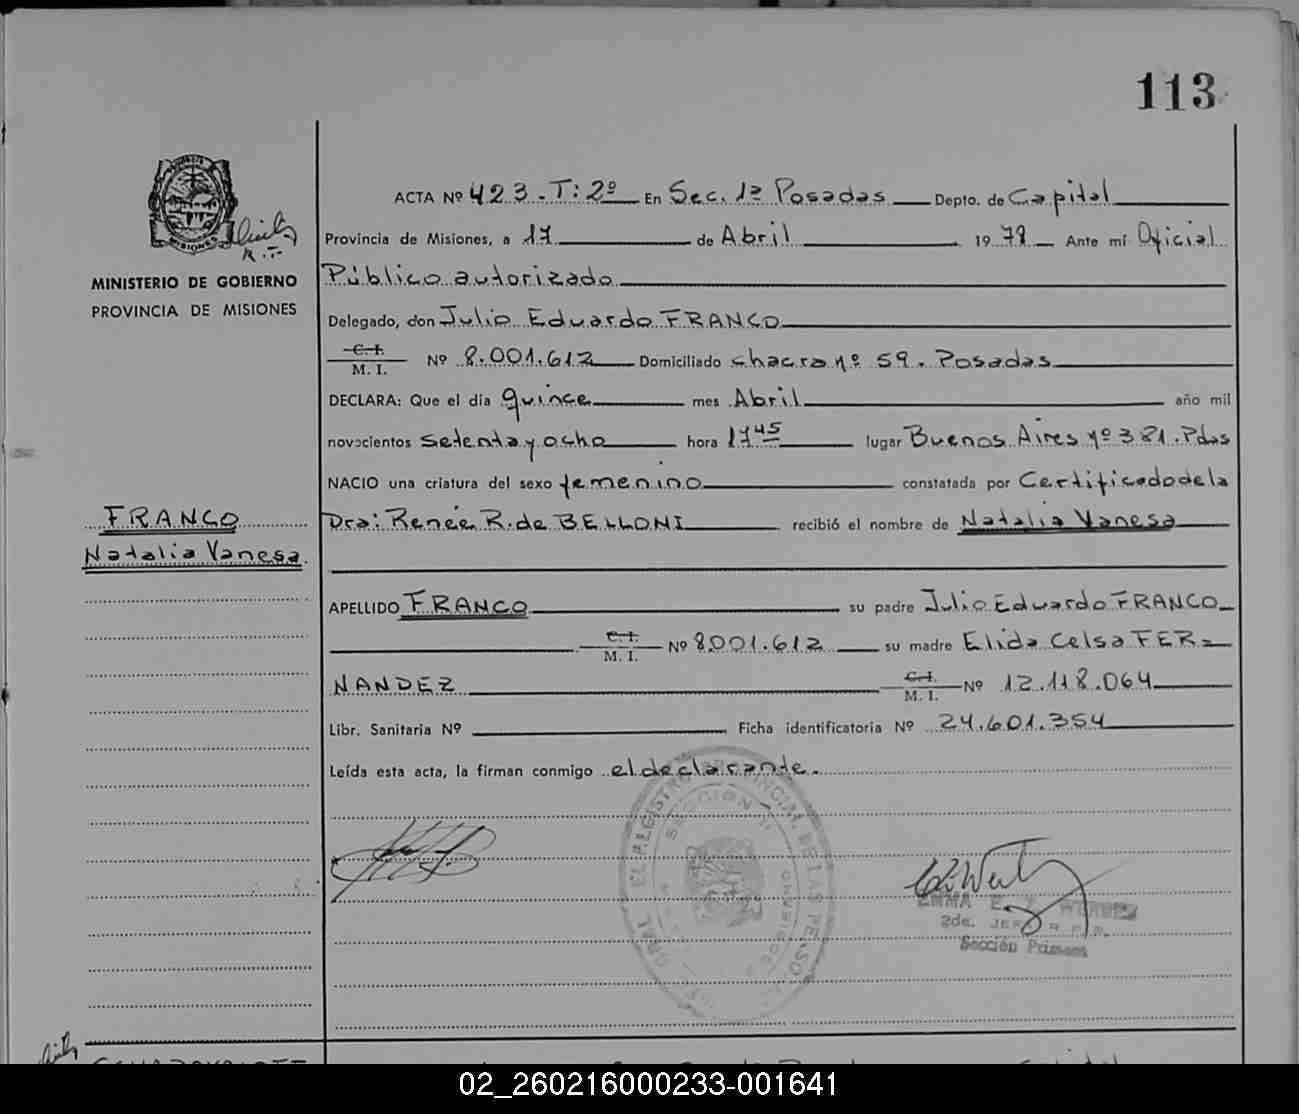 113
MINISTERIO DE GOBIERNO
PROVINCIA DE MISIONES
FRANCO
Natalia Vanesa.
ACTA Nº 423. T: 2º En Sec. 1ª Posadas Depto. de Capital
Provincia de Misiones, a 17 de Abril 1978 Ante mí Oficial
Público autorizado
Delegado, don Julio Eduardo FRANCO
C. I. M. I. Nº 8.001.612 Domiciliado chacra nº 59. Posadas
DECLARA: Que el día quince mes Abril año mil
novecientos setenta y ocho hora 17 45 lugar Buenos Aires nº 381. Pdas
NACIO una criatura del sexo femenino constatada por Certificado de la
Dra: Renée R. de BELLONI recibió el nombre de Natalia Vanesa
APELLIDO FRANCO su padre Julio Eduardo FRANCO
C. I. M. I. Nº 8.001.612 su madre Elida Celsa FER=
NANDEZ C. I. M. I. Nº 12.118.064
Libr. Sanitaria Nº Ficha identificatoria Nº 24.601.354
Leída esta acta, la firman conmigo el declarante.
EMMA E.
2da. JEFA R P P.
Sección Primera
02_260216000233-001641